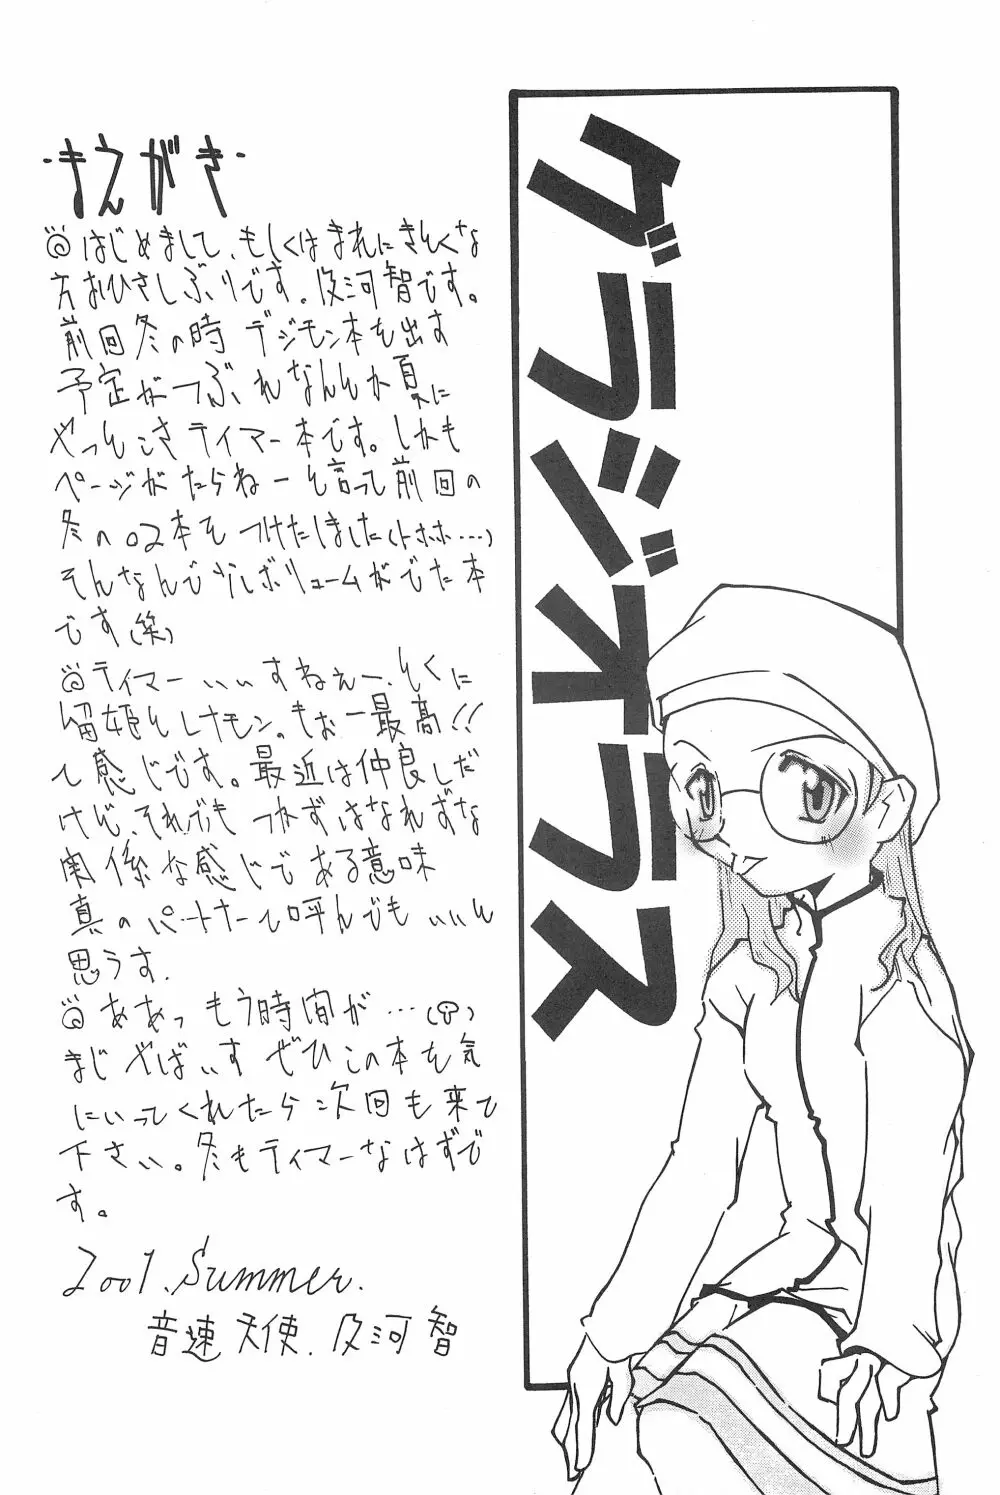 グラジオラス
・まえがき・
◎はじめまして、もしくはまれにきとくな
方おひさしぶりです。及河智です。
前回冬の時デジモン本を出す
予定がつぶれなんとか夏に
やっとこさテイマー本です。しかも
ページがたらねーと言って前回の
冬の02本をつけたしました(トホホ…)
そんなんで少しボリュームがでた本
です(笑)
◎テイマーいいすねぇー、とくに
留姫とレナモン。もぉー最高!!
て感じです。最近は仲良しだ
けど、それでもつかずはなれずな
関係な感じである意味
真のパートナーて呼んでもいいと
思うす.
◎ああっもう時間が…(
まじやばいすぜひこの本を気
にいってくれたら次回も来て
下さい。冬もテイマーなはずで
す。
2001.Summer.
音速天使.及河智